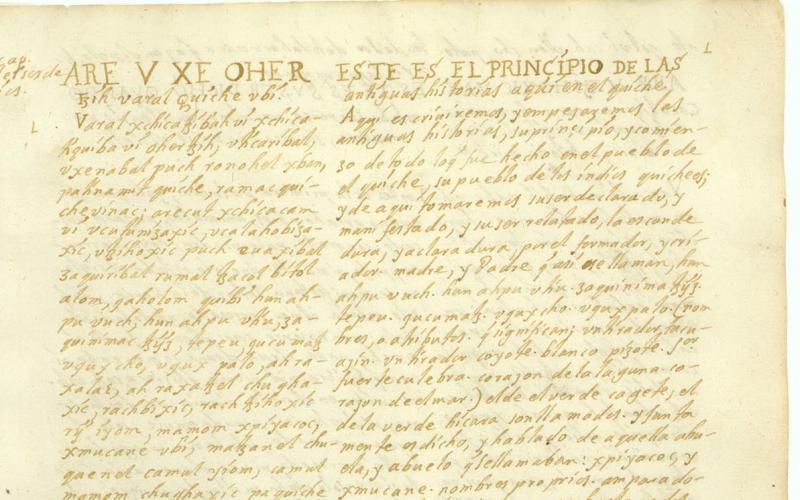 ARE V XE OHER
ꜩih varal Quiche vbi.
Varal xchicaꜩibah vi xchica-
tiquiba vi oher ꜩih, vticaribal,
vxenabal puch ronohel xban,
quiche, ramac qui-
che vinac; arecut xchicacam
vi vcutunizaxic, vcalahobiza-
xic, vꜩihoxic puch euaxibal
zaquiribal rumal ꜩacol bitol
alom, qaholom quibi hun ah-
pu vuch, hun ahpu vtiu, za-
quinimac ꜩÿz, tepeu qucumaꜩ
vqux cho, vqux palo, ah ra-
xa lac, ah raxa ꜩel chugha-
xic, rachbixic, rach ꜩihoxic
rij iyom, mamom xpiyacoc,
xmucane vbi, maꜩanel chu-
quenel camul iyom, camul
mamom, chughaxic pa quiche
ESTE ES EL PRINCIPIO DE LAS
antiguas historias aqui en el quiche
Aqui escriviremos, y empezaremos las
antiguas historias, su principio, y comien-
zo de todo lo q̃ fue hecho en el pueblo de
el quiche, su pueblo de los indios quichees;
y de aqui tomaremos su ser declarado, y
manifestado, y su ser relatado, la esconde
dura, y aclaradura, por el formador, y cri-
ador. madre, y Padre q̃ asi se llaman, hun
ahpu vuch. hun ahpu vtiu. zaquinima ꜩÿz.
tepeu. qucumaꜩ. vquxcho. vquxpalo. (nom
bres, o atributos. q̃ significan; vn tirador, tacu-
azin. vn tirador coyote. blanco pizote.
fuerte culebra. corazon de la laguna. co-
razon de el mar.) el de el verde cagete, el
de la verde hicara son llamados. y junta
mente es dicho, y hablado de aquella abu-
ela, y abuelo q̃ se llamaban: xpiyacoc, y
xmucane. nombres proprios. amparado-